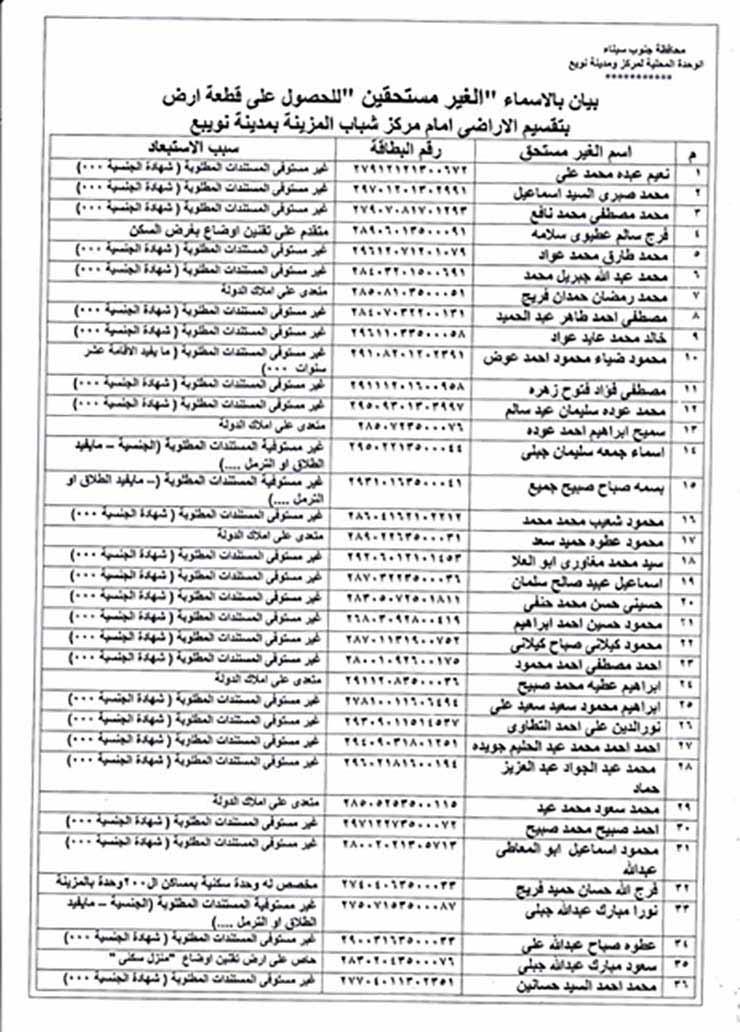 محافظة جنوب سيناء
الوحدة المحلية لمركز ومدينة نويبع
***********
بيان بالاسماء "الغير مستحقين" للحصول على قطعة ارض
بتقسيم الاراضى امام مركز شباب المزينة بمدينة نويبع
م اسم الغير مستحق رقم البطاقة سبب الاستبعاد
١ نعيم عبده محمد على ٢٧٩١٢١٢١٣٠٠٦٧٢ غير مستوفى المستندات المطلوبة ( شهادة الجنسية ٠٠٠)
٢ محمد صبرى السيد اسماعيل ٢٩٧٠١٢٠١٣٠٢٩٩١ غير مستوفى المستندات المطلوبة ( شهادة الجنسية ٠٠٠)
٣ محمد مصطفى محمد نافع ٢٧٩٠٧٠٨١٧٠١٢٩٣ غير مستوفى المستندات المطلوبة ( شهادة الجنسية ٠٠٠)
٤ فرج سالم عطيوى سلامه ٢٨٩٠٦٠١٣٥٠٠٠٩١ متقدم على تقنين اوضاع بغرض السكن
٥ محمد طارق محمد عواد ٢٩٦١٢٠٧١٢٠١٠٧٩ غير مستوفى المستندات المطلوبة ( شهادة الجنسية ٠٠٠)
٦ محمد عبد الله جبريل محمد ٢٨٤٠٣٢٠١٥٠٠٦٩١ غير مستوفى المستندات المطلوبة ( شهادة الجنسية ٠٠٠)
٧ محمد رمضان حمدان فريج ٢٨٥٠٨١٠٣٥٠٠٠٥١ متعدى على املاك الدولة
٨ مصطفى احمد طاهر عبد الحميد ٢٨٤٠٧٠٣٢٢٠٠١٣١ غير مستوفى المستندات المطلوبة ( شهادة الجنسية ٠٠٠)
٩ خالد محمد عابد عواد ٢٩٦١١٠٣٣٥٠٠٠٥٨ غير مستوفى المستندات المطلوبة ( شهادة الجنسية ٠٠٠)
١٠ محمود ضياء محمود احمد عوض ٢٩١٠٨٢٠١٢٠٢٣٩١ غير مستوفى المستندات المطلوبة ( ما يفيد الاقامة عشر
سنوات ٠٠٠)
١١ مصطفى فؤاد فتوح زهره ٢٩١١١٢٠١٦٠٠٩٥٨ غير مستوفى المستندات المطلوبة ( شهادة الجنسية ٠٠٠)
١٢ محمد عوده سليمان عيد سالم ٢٩٥٠٩٣٠١٣٠٣٩٩٧ غير مستوفى المستندات المطلوبة ( شهادة الجنسية ٠٠٠)
١٣ سميح ابراهيم احمد عوده ٢٨٥٠٧٢٣٥٠٠٠٧٦ متعدى على املاك الدولة
١٤ اسماء جمعه سليمان جبلى ٢٩٥٠٢٢١٣٥٠٠٠٤٤ غير مستوفية المستندات المطلوبة (الجنسية – مايفيد
الطلاق او الترمل ....)
١٥ بسمه صباح صبيح جميع ٢٩٣١٠١٦٣٥٠٠٠٤١ غير مستوفية المستندات المطلوبة (– مايفيد الطلاق او
الترمل ....)
١٦ محمود شعيب محمد محمد ٢٨٦٠٤١٦٢١٠٢٢١٢ غير مستوفى المستندات المطلوبة ( شهادة الجنسية ٠٠٠)
١٧ محمود عطوه حميد سعد ٢٨٩٠٢٢٦٣٥٠٠٠٣١ متعدى على املاك الدولة
١٨ سيد محمد مغاورى ابو العلا ٢٩٢٠٦٠١٢١٠١٤٥٣ غير مستوفى المستندات المطلوبة ( شهادة الجنسية ٠٠٠)
١٩ اسماعيل عبيد صالح سلمان ٢٨٧٠٣٢٢٣٥٠٠٠٣٦ غير مستوفى المستندات المطلوبة ( شهادة الجنسية ٠٠٠)
٢٠ حسينى حسن محمد حنفى ٢٨٣٠٥٠٧٢٥٠١٨١١ غير مستوفى المستندات المطلوبة ( شهادة الجنسية ٠٠٠)
٢١ محمود حسين احمد ابراهيم ٢٦٨٠٣٠٩٢٨٠٠٤١٩ غير مستوفى المستندات المطلوبة ( شهادة الجنسية ٠٠٠)
٢٢ محمود كيلانى صباح كيلانى ٢٨٧٠١١٣١٩٠٠٧٥٢ غير مستوفى المستندات المطلوبة ( شهادة الجنسية ٠٠٠)
٢٣ احمد مصطفى احمد محمود ٢٨٠٠١٠٩٢٦٠٠١٧٥ غير مستوفى المستندات المطلوبة ( شهادة الجنسية ٠٠٠)
٢٤ ابراهيم عطيه محمد صبيح ٢٩١١٢٠٨٣٥٠٠٠٣٦ متعدى على املاك الدولة
٢٥ ابراهيم محمود سعيد سعيد على ٢٧٨١٠٠١١٦٠٦٤٩٤ غير مستوفى المستندات المطلوبة ( شهادة الجنسية ٠٠٠)
٢٦ نورالدين على احمد النطاوى ٢٩٣٠٩٠١١٥١٤٥٣٧ غير مستوفى المستندات المطلوبة ( شهادة الجنسية ٠٠٠)
٢٧ احمد احمد محمد عبد الحليم جويده ٢٩٤٠٩٠٣١٨٠١٢٥١ غير مستوفى المستندات المطلوبة ( شهادة الجنسية ٠٠٠)
٢٨ محمد عبد الجواد عبد العزيز ٢٩٦٠٢١٨١٦٠٠١٩٤ غير مستوفى المستندات المطلوبة ( شهادة الجنسية ٠٠٠)
حماد
٢٩ محمد سعود محمد عيد ٢٨٥٠٥٢٥٣٥٠٠١١٥ متعدى على املاك الدولة
٣٠ احمد صبيح محمد صبيح ٢٩٧١٢٢٧٣٥٠٠٠٧٢ غير مستوفى المستندات المطلوبة ( شهادة الجنسية ٠٠٠)
٣١ محمود اسماعيل ابو المعاطى ٢٨٠٠٢٠٢١٣٠٥٧١٣ غير مستوفى المستندات المطلوبة ( شهادة الجنسية ٠٠٠)
عبدالله
٣٢ فرج الله حسان حميد فريج ٢٧٤٠٤٠٦٣٥٠٠٠٣٣ مخصص له وحدة سكنية بمساكن ال٢٠٠وحدة بالمزينة
٣٣ نورا مبارك عبدالله جبلى ٢٧٥٠٧١٥٣٥٠٠٠٨٧ غير مستوفية المستندات المطلوبة (الجنسية – مايفيد
الطلاق او الترمل ....)
٣٤ عطوه صباح عبدالله على ٢٩٠٠٣١٦٣٥٠٠٠٣٣ غير مستوفى المستندات المطلوبة ( شهادة الجنسية ٠٠٠)
٣٥ سعود مبارك عبدالله جبلى ٢٨٣٠٢٠٤٣٥٠٠٠٧٦ حاص على ارض تقنين اوضاع "منزل سكنى "
٣٦ محمد احمد السيد حسانين ٢٧٧٠٤٠١١٣٠٢٣٥١ غير مستوفى المستندات المطلوبة ( شهادة الجنسية ٠٠٠)